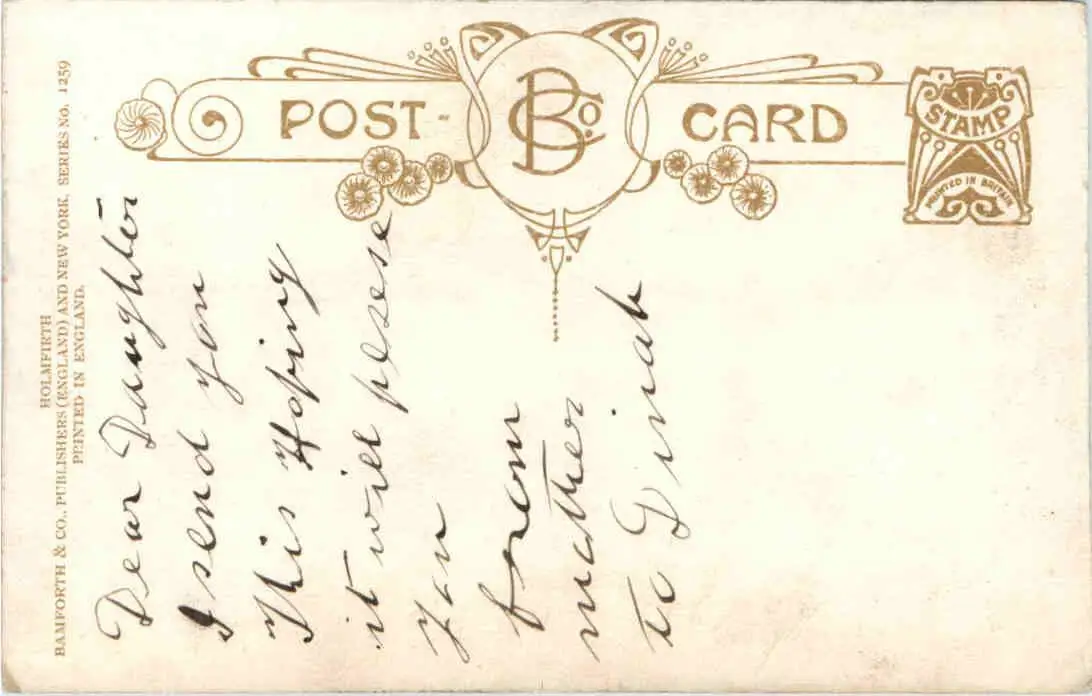 POST-CARD
B Co.
STAMP
PRINTED IN BRITAIN
HOLMFIRTH
BAMFORTH & CO., PUBLISHERS (ENGLAND) AND NEW YORK, SERIES NO. 1259
PRINTED IN ENGLAND.
Dear Daughter
I send you
This Hoping
it will plese
You
from
mother
to Dinah